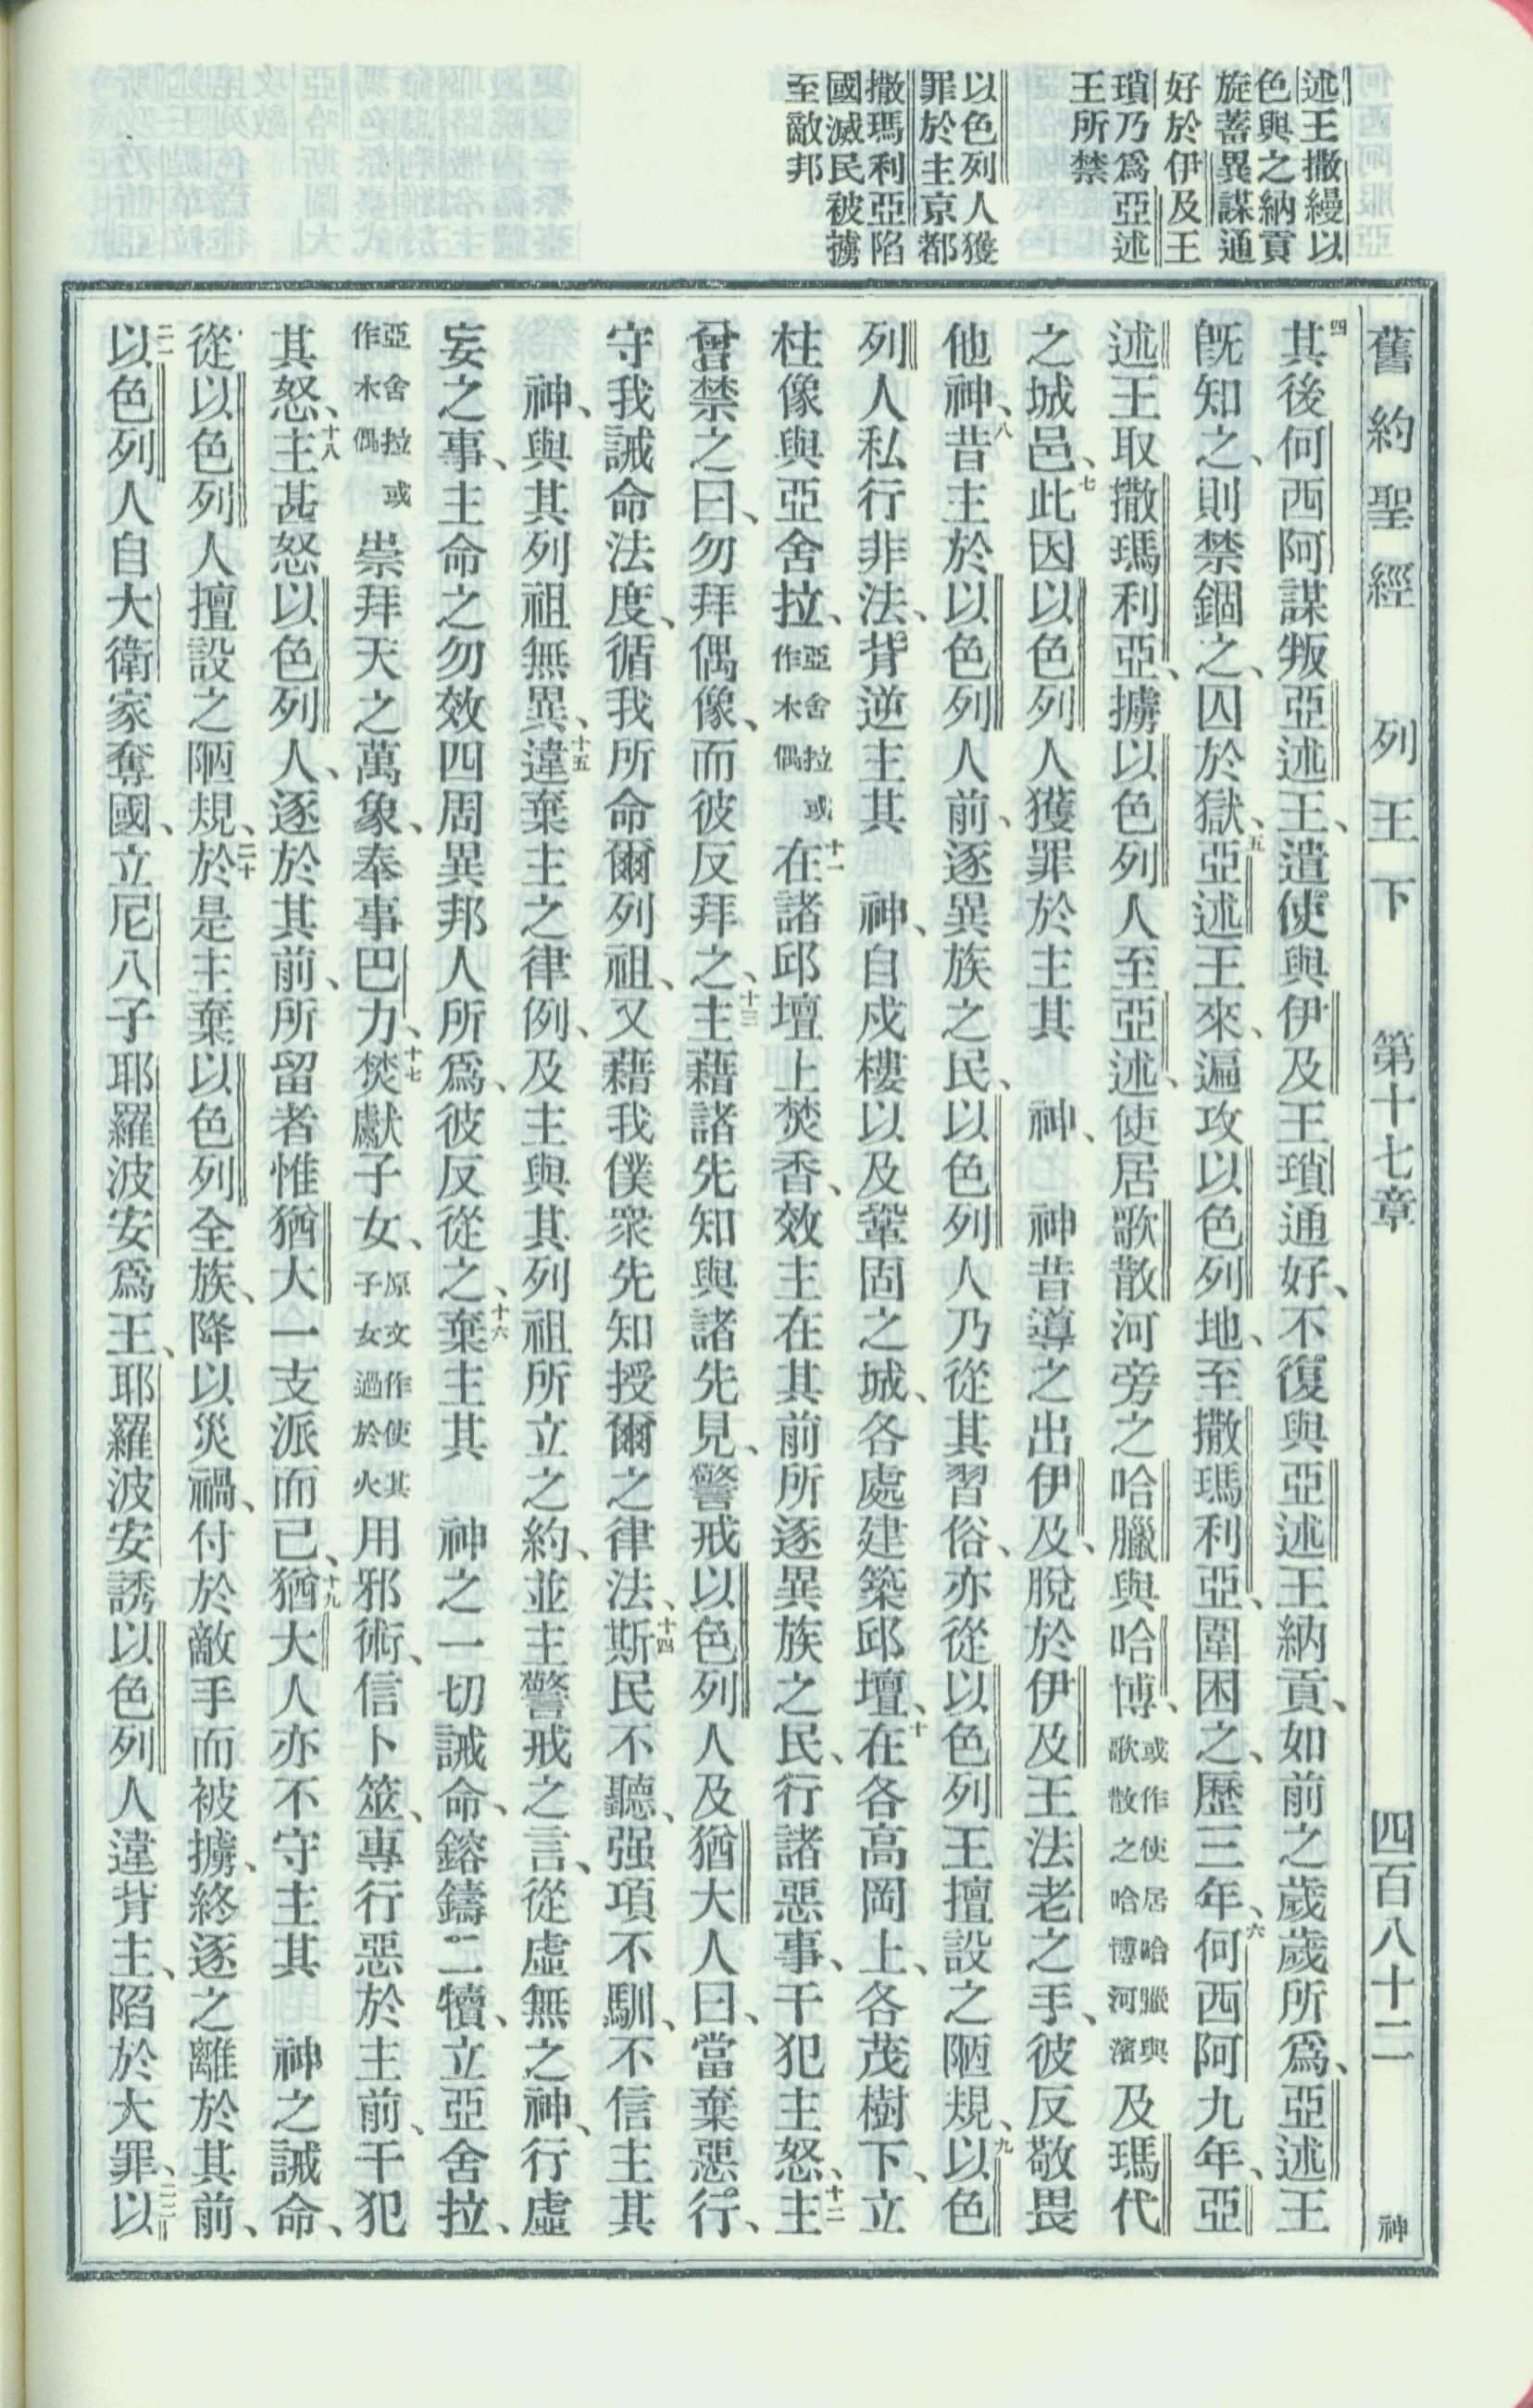 述王撒縵以
色與之納貢
旋蓄異謀通
好於伊及王
瑣乃爲亞述
王所禁
以色列人獲
罪於主京都
撒瑪利亞陷
國滅民被擄
至敵邦
舊約聖經 列王下 第十七章 四百八十二 神
四其後何西阿謀叛亞述王、遣使與伊及王瑣通好、不復與亞述王納貢、如前之歲歲所爲、亞述王
旣知之、則禁錮之、囚於獄、五亞述王來、遍攻以色列地、至撒瑪利亞、圍困之、歷三年、六何西阿九年、亞
述王取撒瑪利亞、擄以色列人至亞述、使居歌散河旁之哈臘與哈博、或作使居哈臘與歌散之哈博河濱及瑪代
之城邑、七此因以色列人獲罪於主其 神、 神昔導之出伊及、脫於伊及王法老之手、彼反敬畏
他神、八昔主於以色列人前、逐異族之民、以色列人乃從其習俗、亦從以色列王擅設之陋規、九以色
列人私行非法、背逆主其 神、自戍樓以及鞏固之城、各處建築邱壇、十在各高岡上、各茂樹下、立
柱像與亞舍拉、亞舍拉或作木偶十一在諸邱壇上焚香、效主在其前所逐異族之民、行諸惡事、干犯主怒、十二主
曾禁之曰、勿拜偶像、而彼反拜之、十三主藉諸先知與諸先見、警戒以色列人及猶大人曰、當棄惡行、
守我誡命法度、循我所命爾列祖、又藉我僕衆先知授爾之律法、十四斯民不聽、强項不馴、不信主其
 神、與其列祖無異、十五違棄主之律例、及主與其列祖所立之約、並主警戒之言、從虛無之神、行虛
妄之事、主命之勿效四周異邦人所爲、彼反從之、十六棄主其 神之一切誡命、鎔鑄二犢、立亞舍拉、
亞舍拉或作木偶崇拜天之萬象、奉事巴力、十七焚獻子女、原文作使其子女過於火用邪術、信卜筮、專行惡於主前、干犯
其怒、十八主甚怒以色列人、逐於其前、所留者惟猶大一支派而已、十九猶大人亦不守主其 神之誡命、
從以色列人擅設之陋規、二十於是主棄以色列全族、降以災禍、付於敵手而被擄、終逐之離於其前、
二一以色列人自大衛家奪國、立尼八子耶羅波安爲王、耶羅波安誘以色列人違背主、陷於大罪、二二以